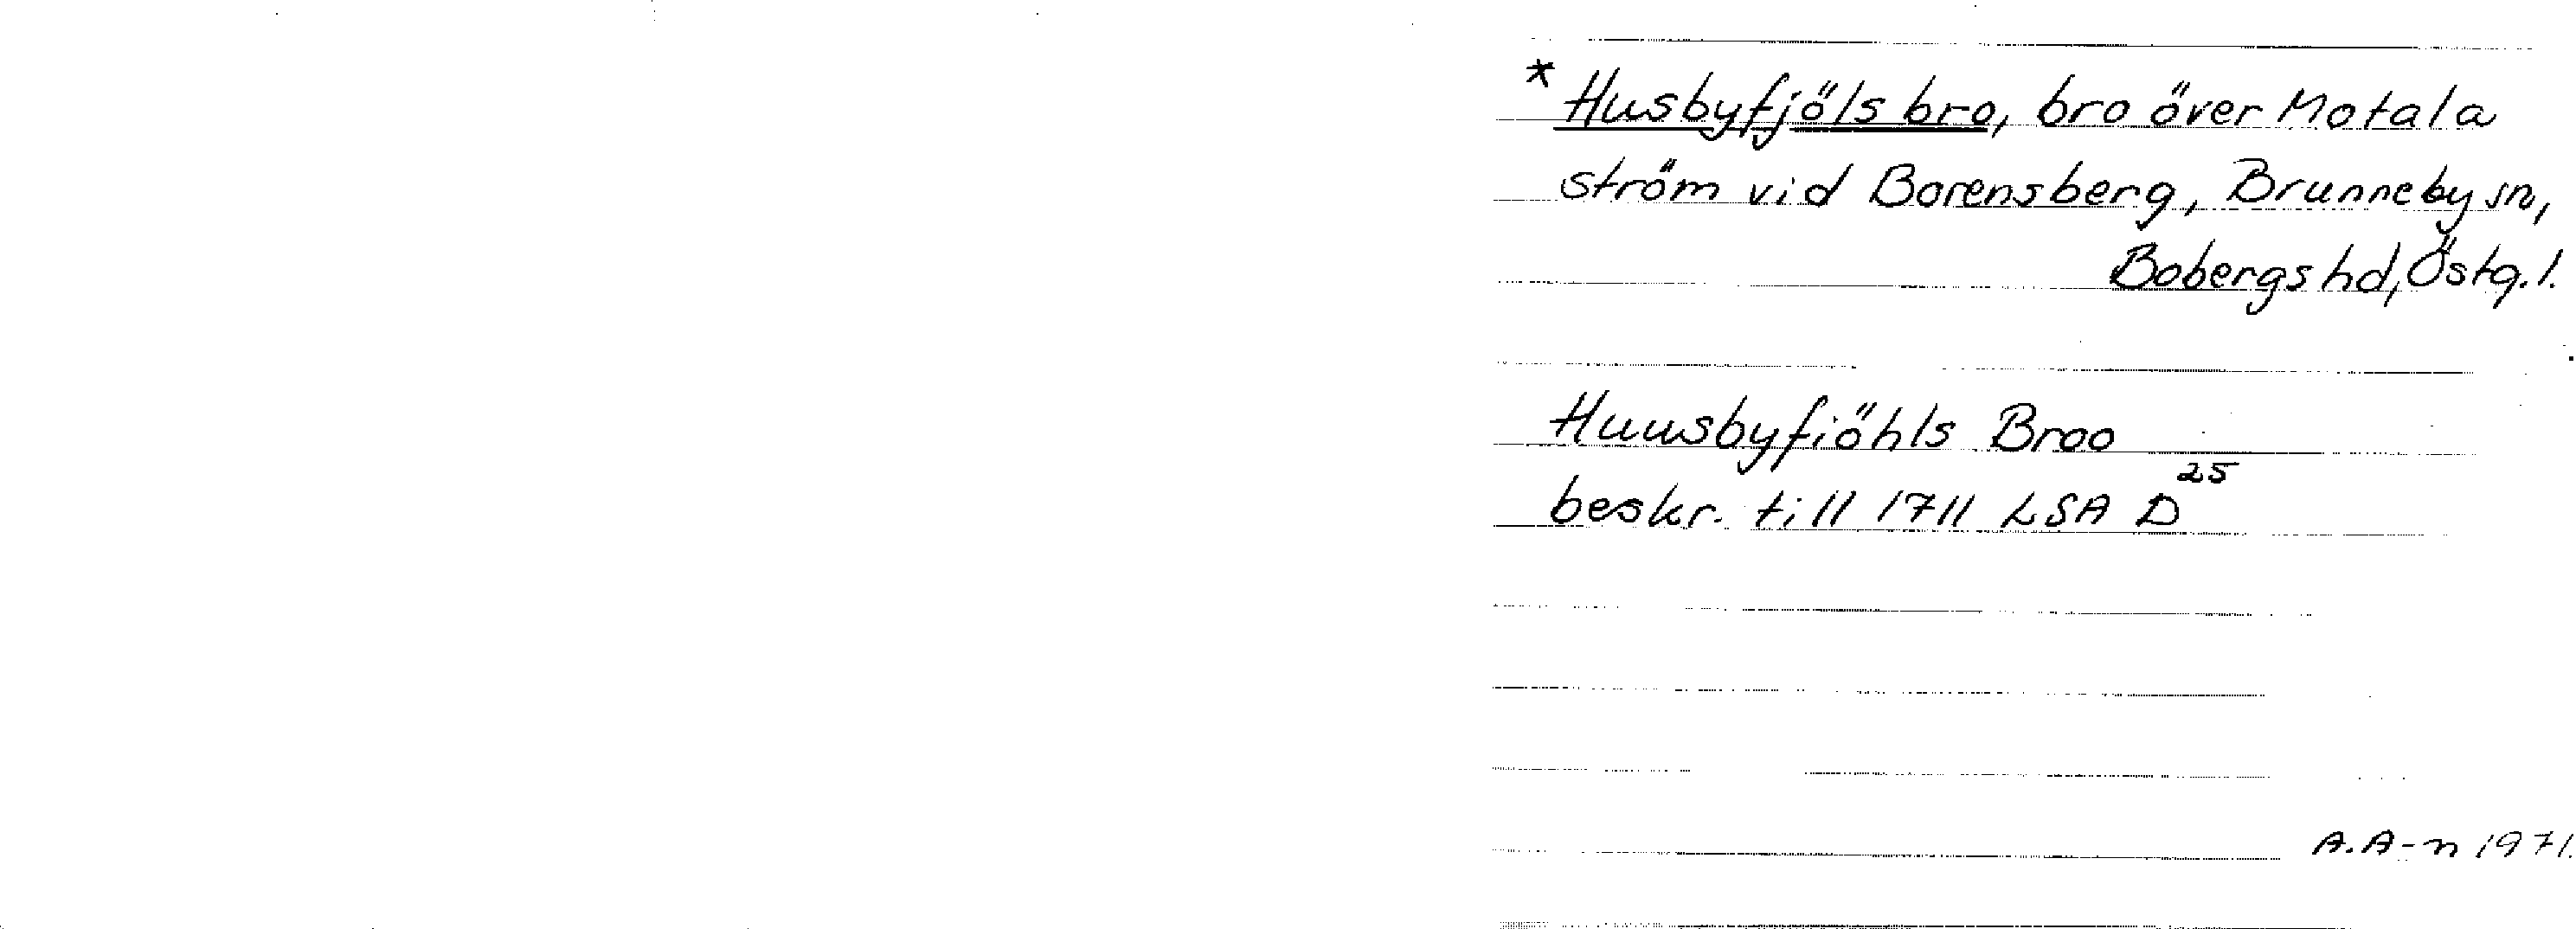 * Husbyfjöls bro, bro över Motala
ström vid Borensberg, Brunneby sn,
Bobergs hd, Östg.l.
Huusbyfiöhls Broo
beskr. till 1711 LSA D25
A.A-n 1971.